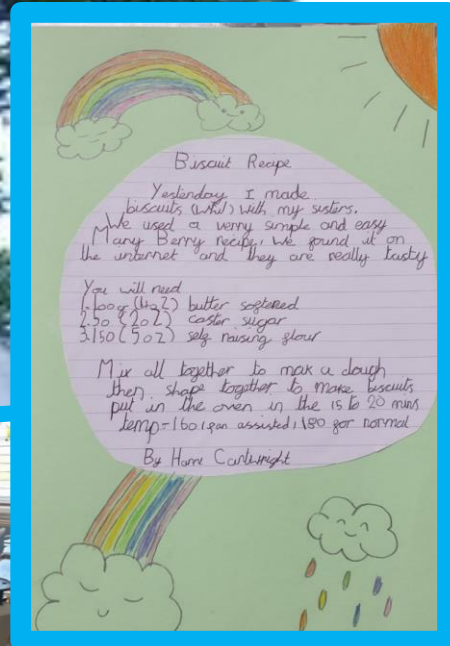 Biscuit Recipe
Yesterday I made
biscuits (whil) with my sisters.
We used a verry simple and easy
Mary Berry recipe, we found it on
the internet and they are really tasty
You will need
1.100g (4oz) butter softened
2.50 (2oz) caster sugar
3.150 (5oz) self raising flour
Mix all together to mak a dough
then shape together to make biscuits
put in the oven in the 15 to 20 mins
temp=160 fan assisted, 180 for normal
By Harri Cartwright